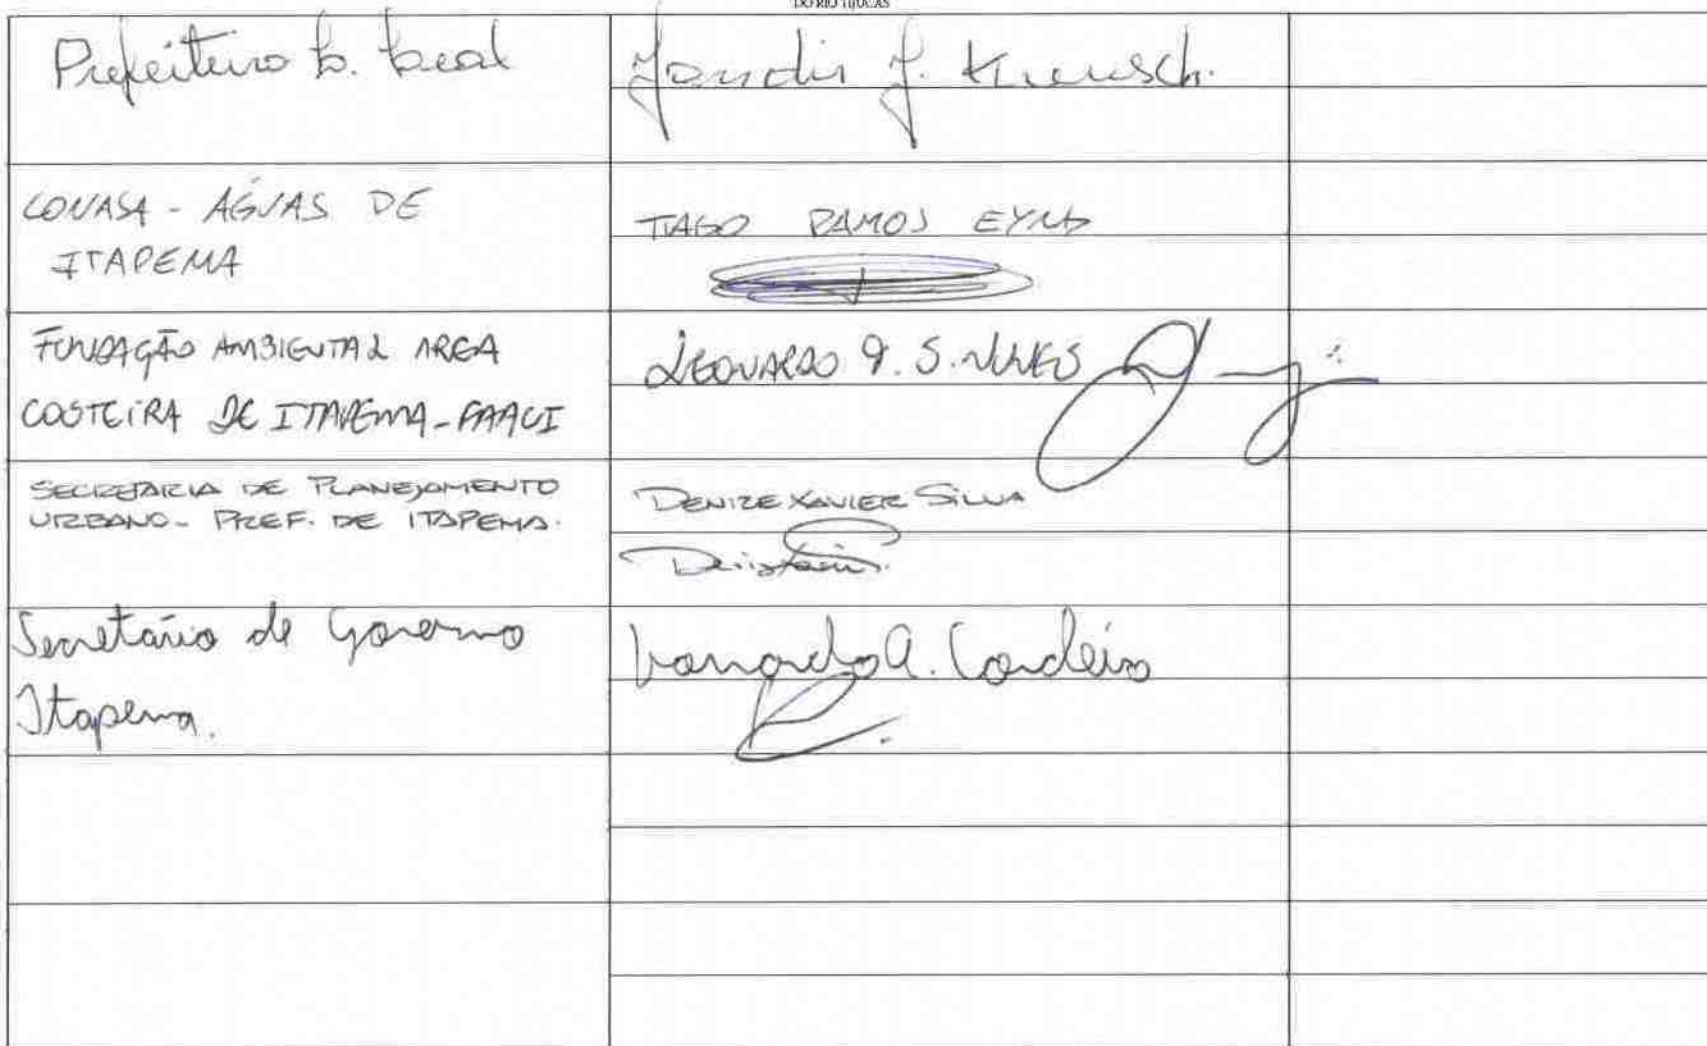 DO RIO TIJUCAS
Prefeitura B.
Jandir J. Kreusch.
CONASA - ÁGUAS DE
ITAPEMA
TIAGO RAMOS
FUNDAÇÃO AMBIENTAL AREA
COSTEIRA DE ITAPEMA - FAACI
LEONARDO P. S. NUNES
SECRETARIA DE PLANEJAMENTO
URBANO - PREF. DE ITAPEMA.
DENIZE XAVIER SILVA
Secretário de Governo
Itapema.
A. Cordeiro